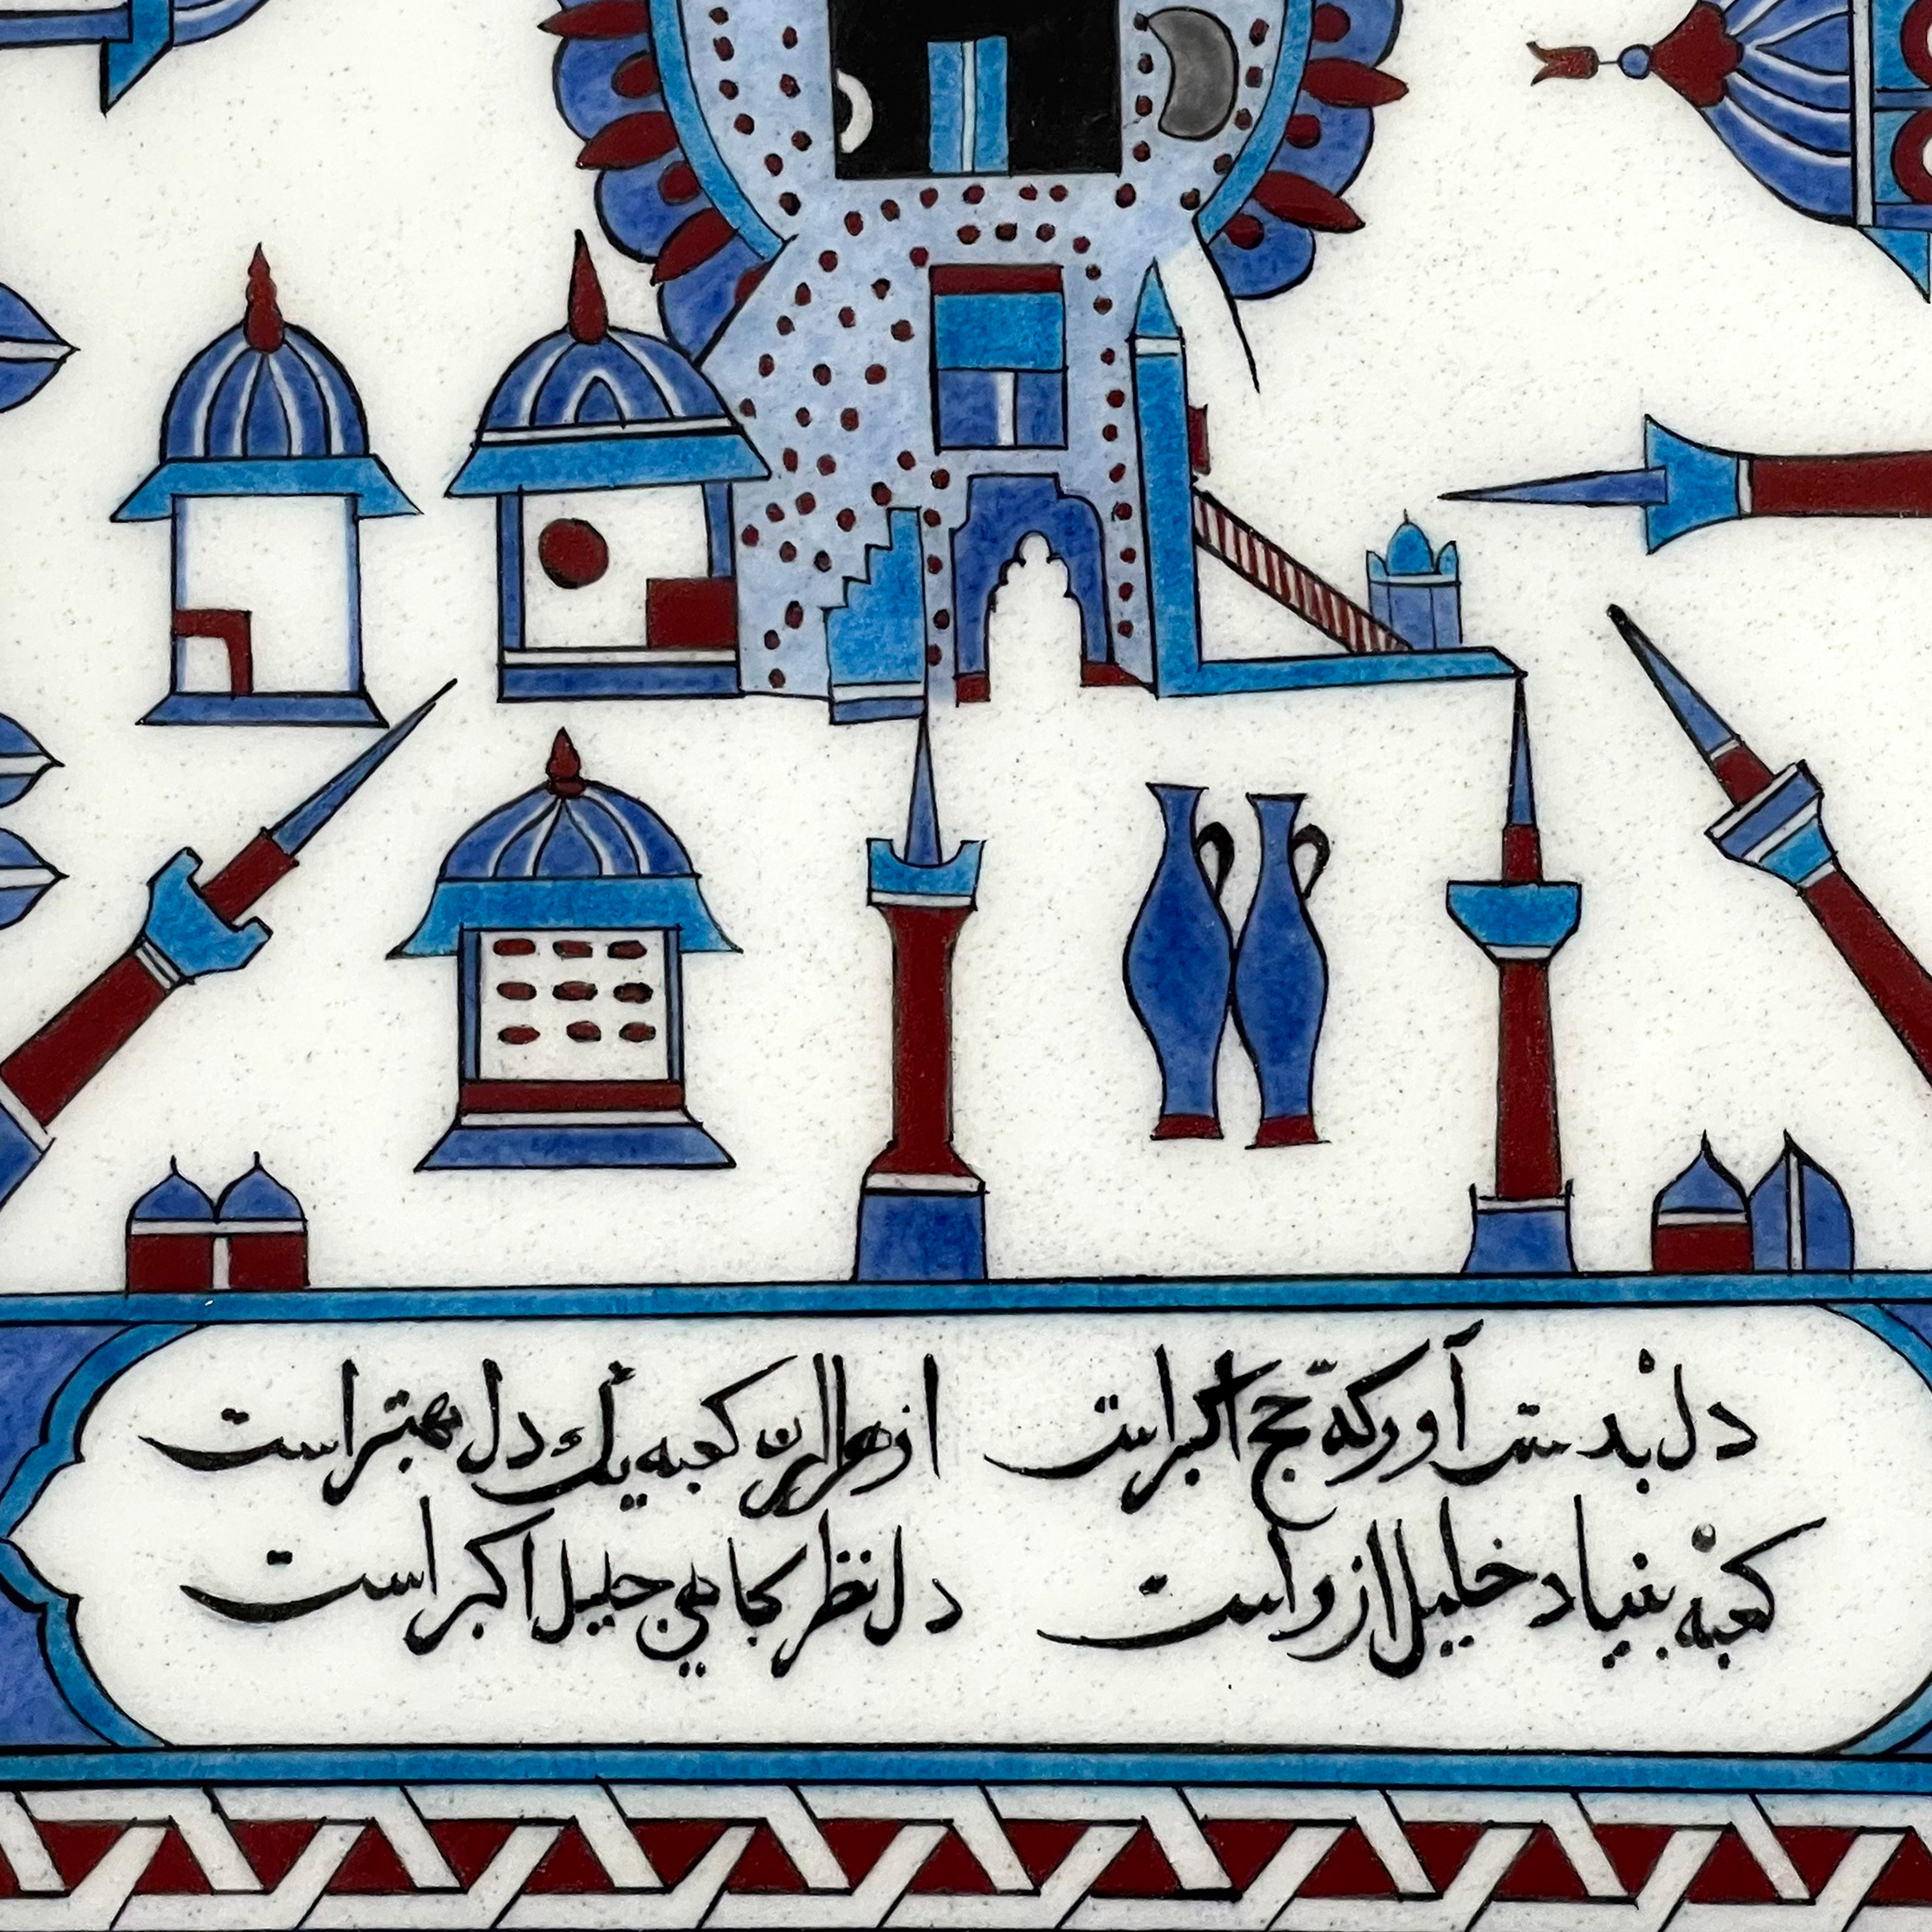 دل بدست آور که حج اکبر است از هزاران کعبه یك دل بهتر است
کعبه بنیاد خلیل ازر است دل نظرکاهی جلیل اکبر است